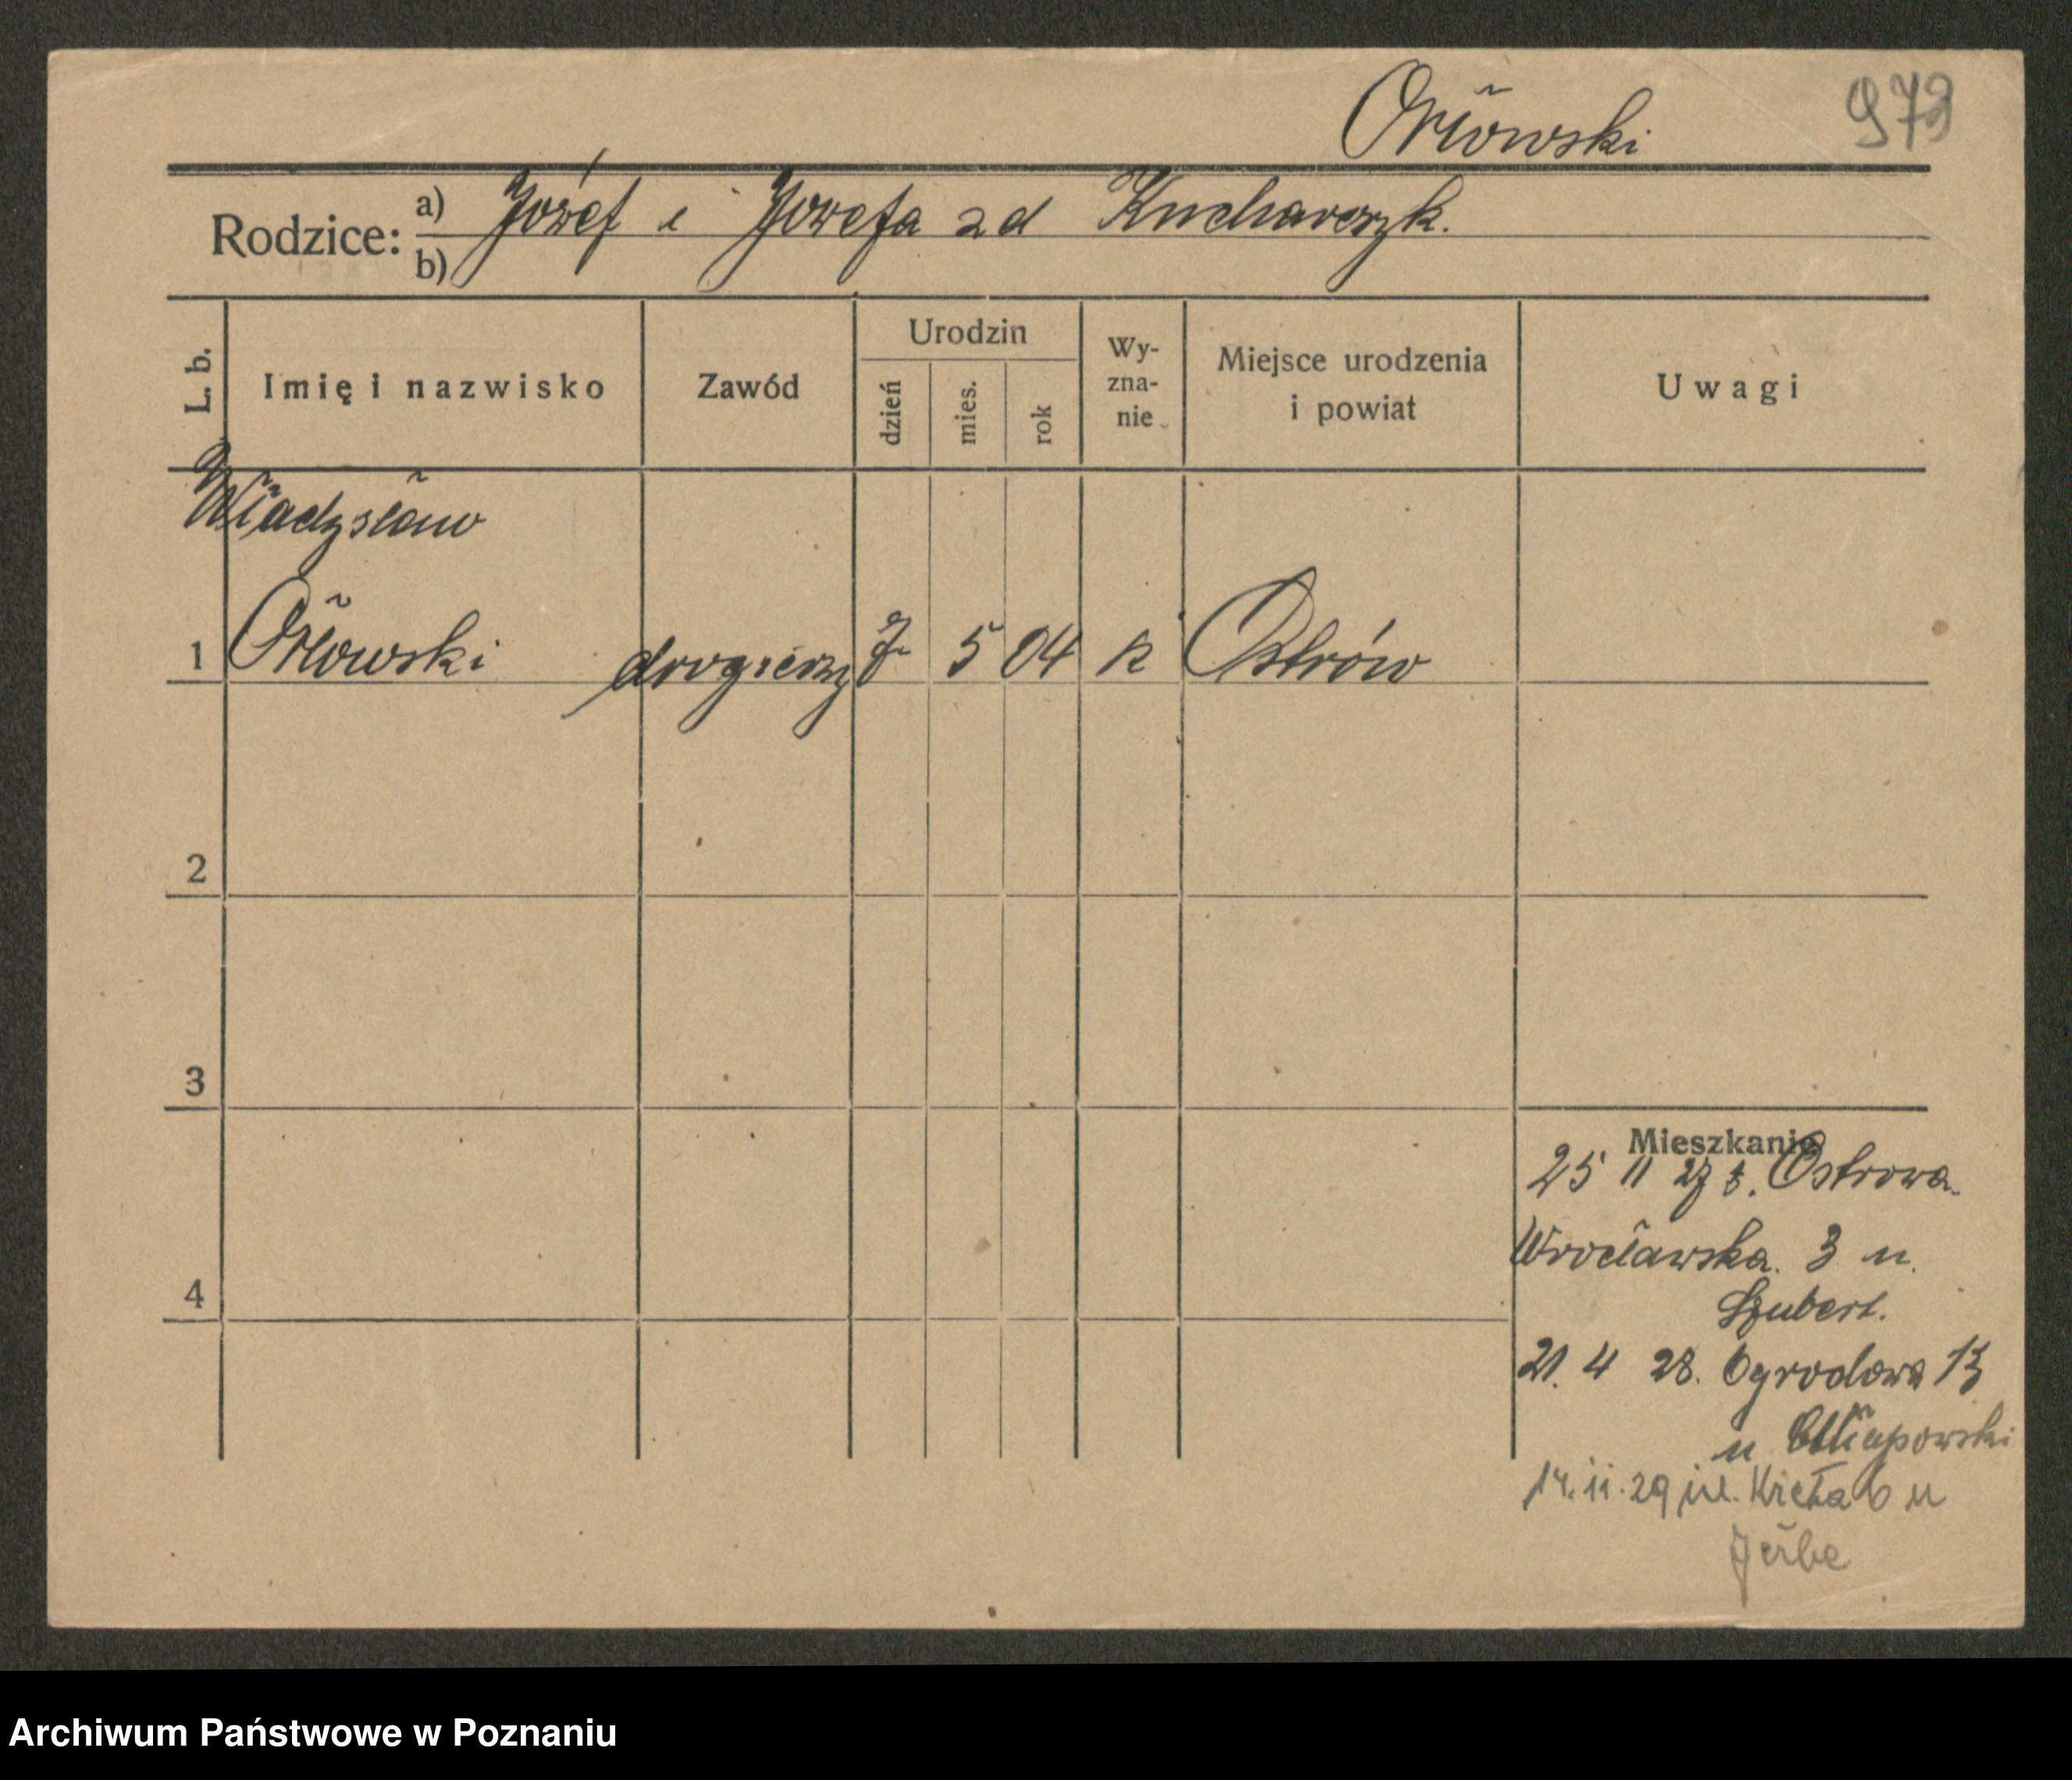 Orłowski 973
Rodzice: a) Józef i Jozefa zd Kucharczyk.
b)
L. b. Imię i nazwisko Zawód Urodzin dzień mies. rok Wy-zna-nie Miejsce urodzenia i powiat Uwagi
Władysław
1 Orłowski 7 5 04 k Ostrów
2
3
Mieszkanie
25 11 27 z. Ostrowa.
Wrocławska. 3 u.
4
Szubert.
21. 4 28. Ogrodowa 13
u Chłapowski
14.11.29 ul. 6 u
Archiwum Państwowe w Poznaniu